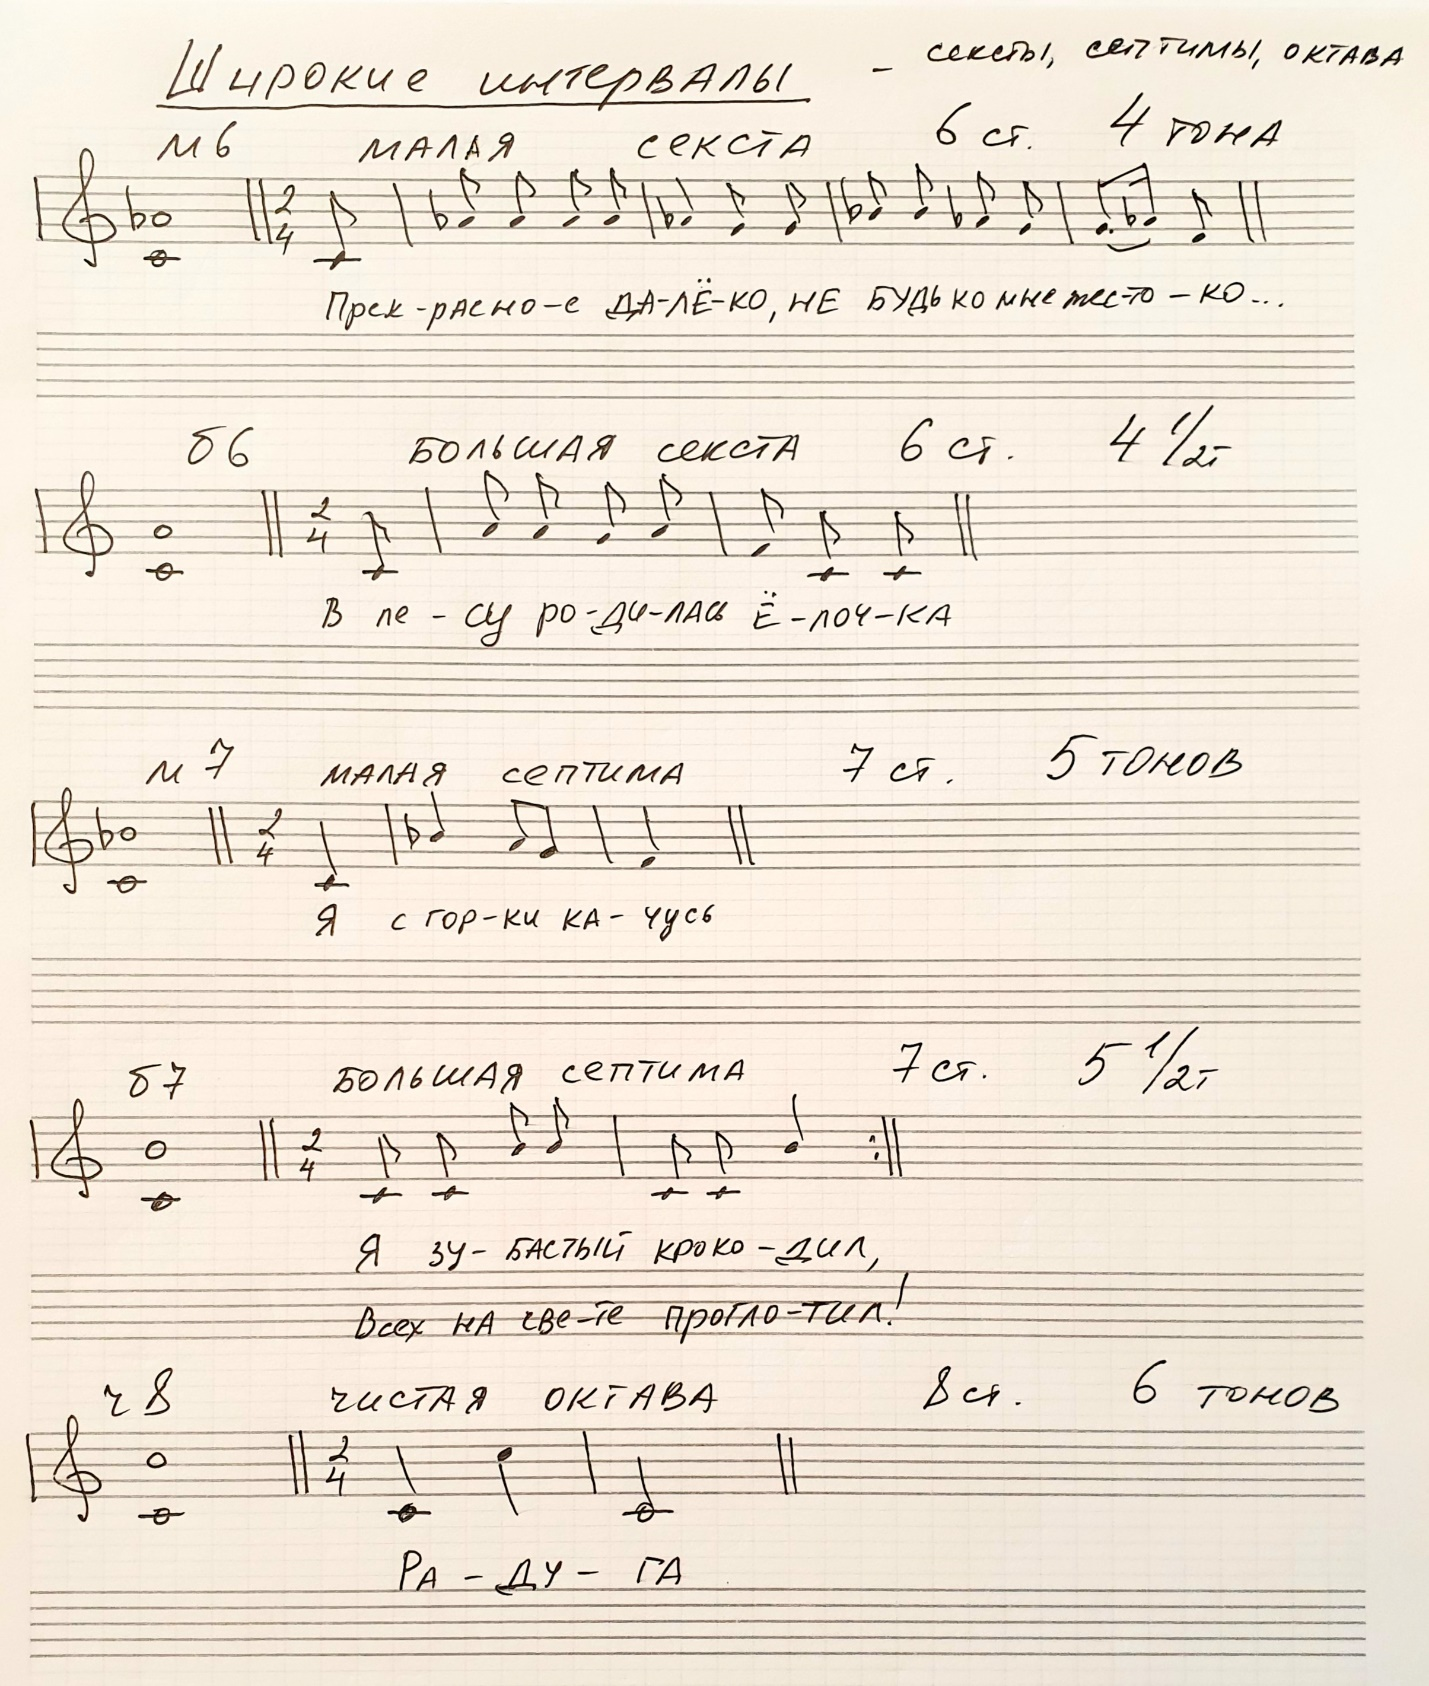 Широкие интервалы - сексты, септимы, октава
м6 малая секста 6 ст. 4 тона
2/4
Прек-расно-е ДА-ЛЁ-КО, НЕ БУДЬ КО мне жес-то-ко...
б6 БОЛЬШАЯ секста 6 ст. 4 1/2т
2/4
В ле-су ро-ди-лась Ё-лоч-КА
м7 малая септима 7 ст. 5 тонов
2/4
Я с гор-ки ка-чусь
б7 БОЛЬШАЯ септима 7 ст. 5 1/2т
2/4
Я зу-БАСТЫЙ кроко-дил,
Всех на све-те прогло-тил!
ч8 чистая октава 8 ст. 6 тонов
2/4
РА-ДУ-ГА